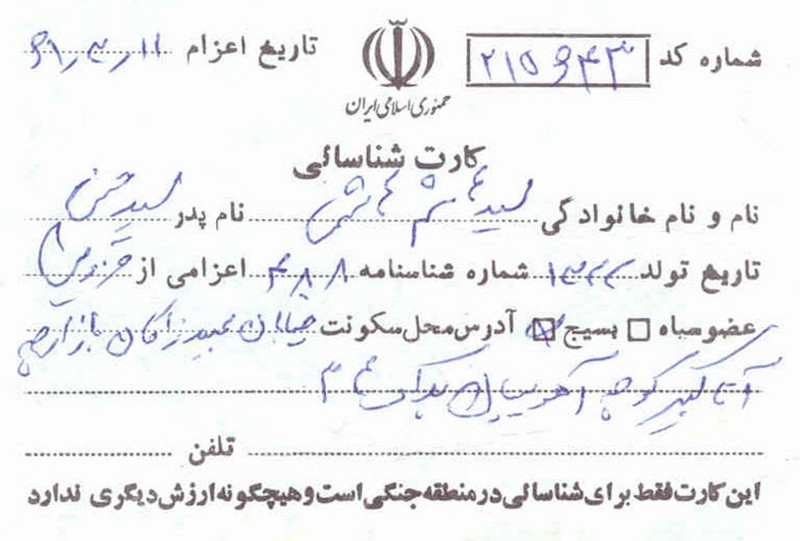 شماره کد ۲۱۵۶۴۳ تاریخ اعزام ۶۱٫۳٫۱۱
جمهوری اسلامی ایران
کارت شناسائی
نام و نام خانوادگی سید هاشم هاشمی نام پدر سید حسن
تاریخ تولد ۱۳۴۲ شماره شناسنامه ۴۸۸ اعزامی از قزوین
عضو سپاه □ بسیج ☒ آدرس محل سکونت خیابان عبید زاکان بازارچه
کوچه
تلفن
این کارت فقط برای شناسائی در منطقه جنگی است و هیچگونه ارزش دیگری ندارد